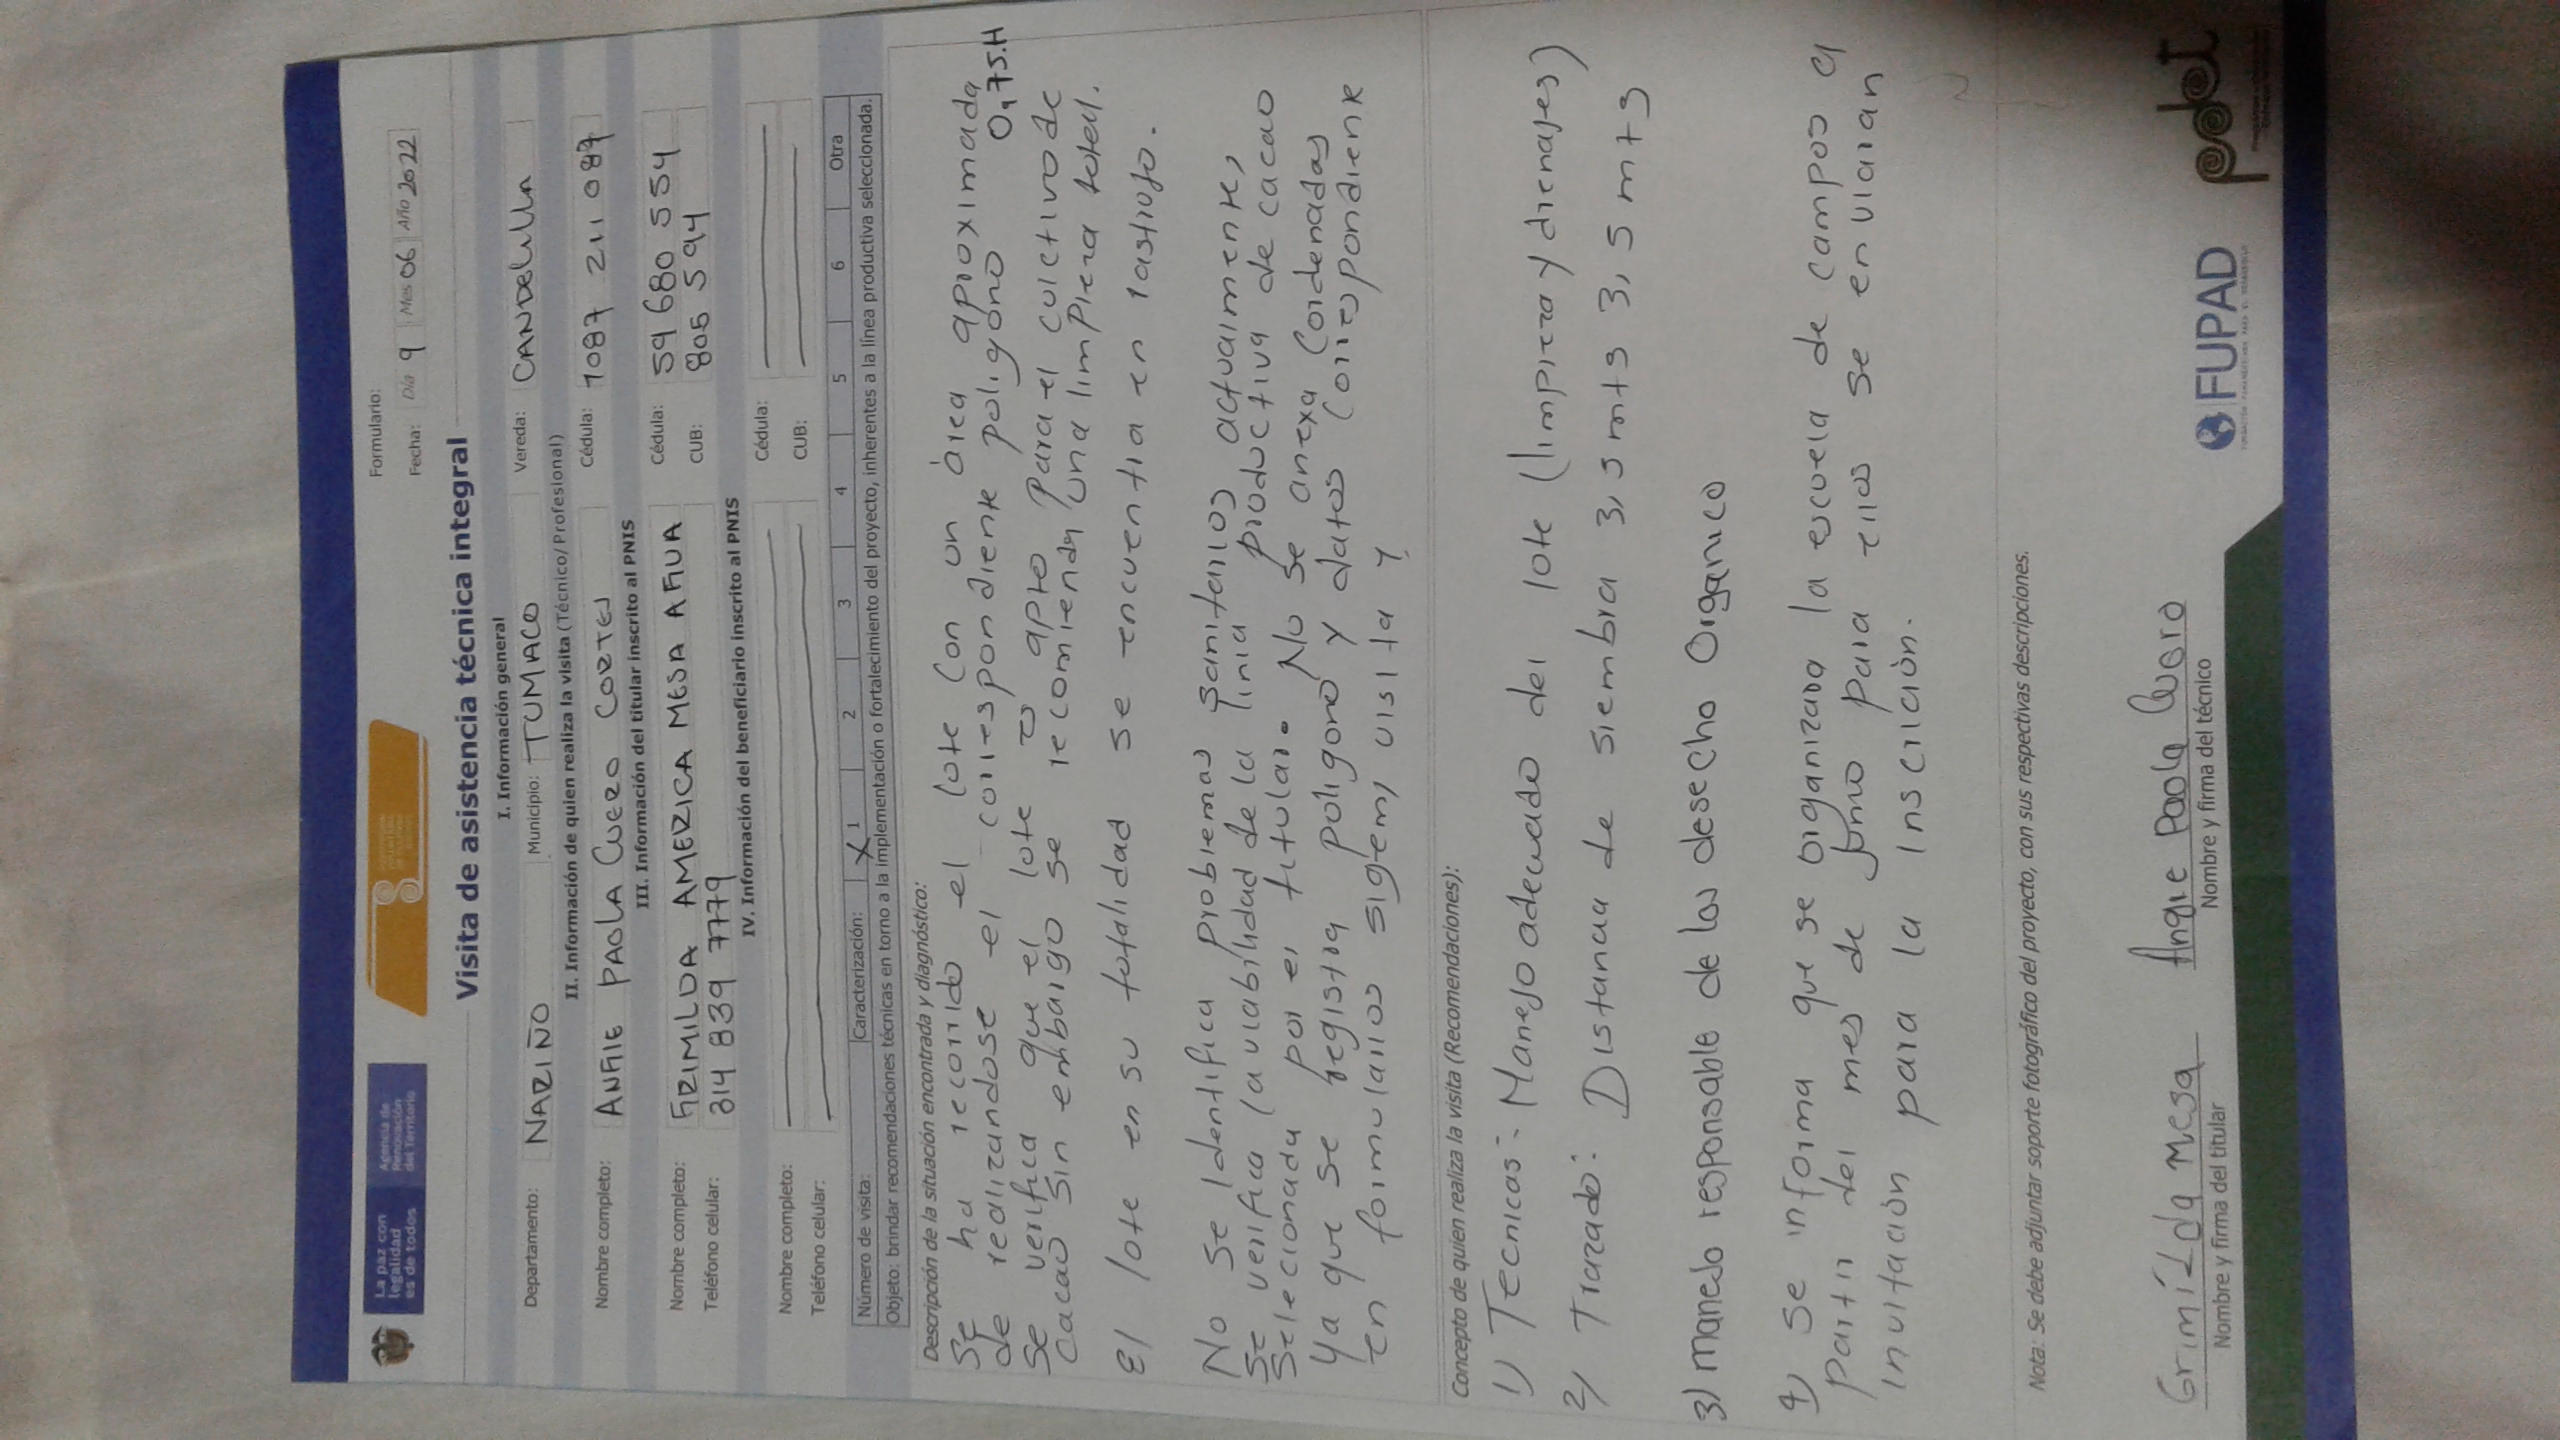 La paz con
legalidad
es de todos
Agencia de
Renovación
del Territorio
Formulario:
Fecha: Día 9 Mes 06 Año 2022
Visita de asistencia técnica integral
I. Información general
Departamento: NARIÑO Municipio: TUMACO Vereda: CANDELILLA
II. Información de quien realiza la visita (Técnico/Profesional)
Nombre completo: ANGIE PAOLA CUERO CORTES Cédula: 1087 211 087
III. Información del titular inscrito al PNIS
Nombre completo: GRIMILDA AMERICA MESA AGUA Cédula: 59 680 554
Teléfono celular: 314 839 7779 CUB: 805 594
IV. Información del beneficiario inscrito al PNIS
Nombre completo: Cédula:
Teléfono celular: CUB:
Número de visita: Caracterización: X 1 2 3 4 5 6 Otra
Objeto: brindar recomendaciones técnicas en torno a la implementación o fortalecimiento del proyecto, inherentes a la línea productiva seleccionada.
Descripción de la situación encontrada y diagnóstico:
Se ha recorrido el lote con un área aproximada
de realizandose el correspondiente poligono 0,75.H
Se verifica que el lote es apto para el cultivo de
cacao sin embargo se recomienda una limpieza total.
El lote en su totalidad se encuentra en rastrojo.
No se Identifica problemas sanitarios actualmente,
se verifica la viabilidad de la linia productiva de cacao
selecionada por el titular. No se anexa Cordenadas
ya que se registra poligono y datos correspondiente
en formularios sigem, visita y
Concepto de quien realiza la visita (Recomendaciones):
1) Tecnicas: Manejo adecuado del lote (limpieza y drenajes)
2) Trazado: Distancia de siembra 3,5 mts 3,5 mts
3) manejo responsable de los desecho Organico
4) se informa que se organizara la escuela de campos a
partir del mes de Junio para ellos se enviaran
invitación para la inscrición.
Nota: Se debe adjuntar soporte fotográfico del proyecto, con sus respectivas descripciones.
Grimilda mesa Angie Paola Cuero
Nombre y firma del titular Nombre y firma del técnico
FUPAD
pdet